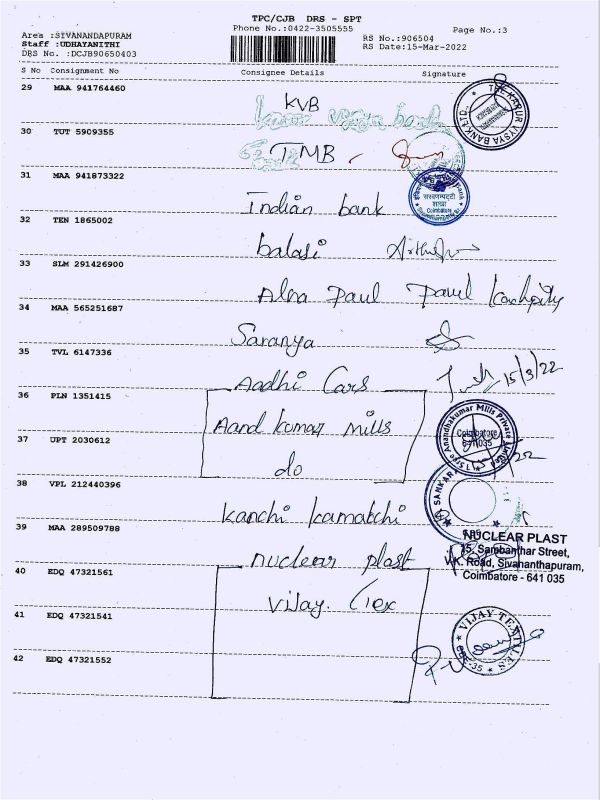 TPC/CJB DRS - SPT
Phone No.:0422-3505555
Page No.:3
Area :SIVANANDAPURAM
Staff :UDHAYANITHI
DRS No. :DCJB90650403
RS No.:906504
RS Date:15-Mar-2022
S No Consignment No Consignee Details Signature
29 MAA 941764460 KVB
THE KARUR VYSYA BANK LTD.,
30 TUT 5909355 TMB
31 MAA 941873322 Indian bank
Coimbatore
32 TEN 1865002 balaji
33 SLM 291426900 Paul Paul
34 MAA 565251687 Saranya
35 TVL 6147336 Aadhi Cars 15/3/22
36 PLN 1351415 Aand kumar mills
Anandhakumar Mills Private Limited
Coimbatore
641 035
37 UPT 2030612 do
38 VPL 212440396 Kanchi kamatchi
SANKAR
39 MAA 289509788 nuclear plast
NUCLEAR PLAST
15, Sambanthar Street,
V.K. Road, Sivananthapuram,
Coimbatore - 641 035
40 EDQ 47321561 Vijay. Tex
41 EDQ 47321541
VIJAY TEXTILES
CBE-35
42 EDQ 47321552